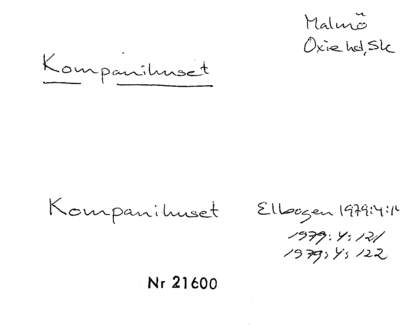 Malmö
Oxie hd, Sk
Kompanihuset
Kompanihuset Elbogen 1979:4:1
1979:4:121
1979:4:122
Nr 21600